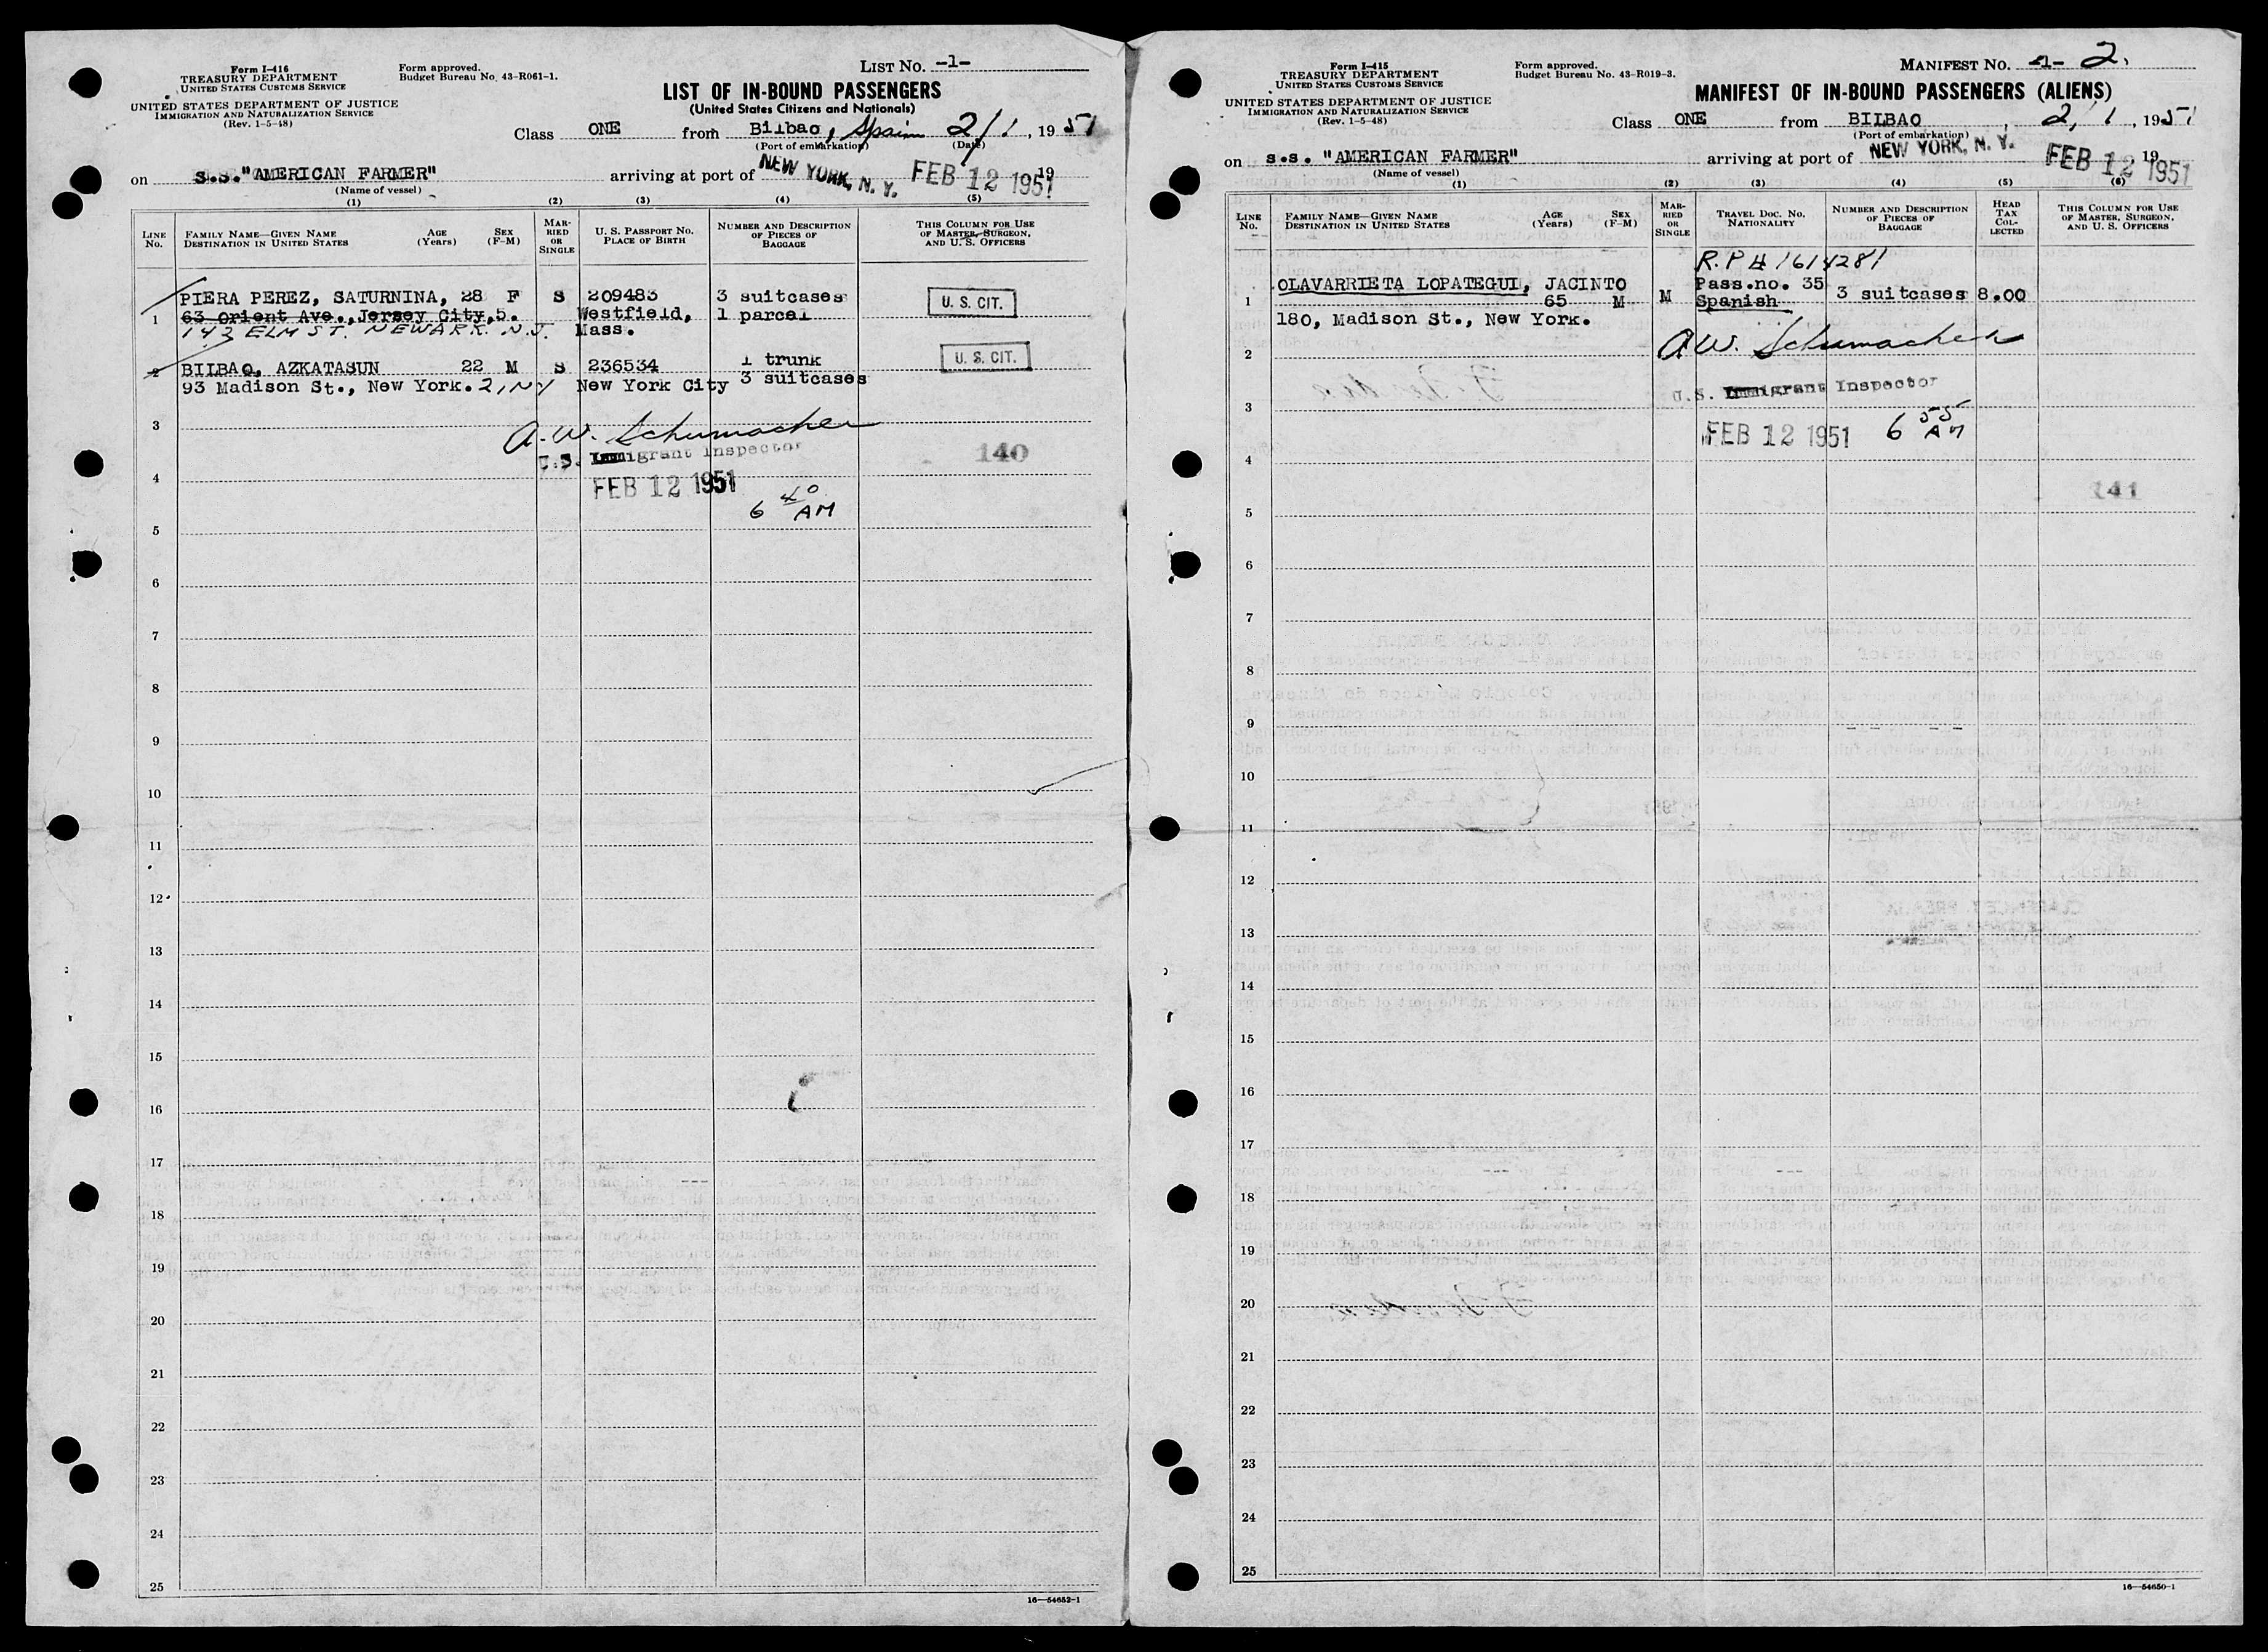 Form I-416
TREASURY DEPARTMENT
UNITED STATES CUSTOMS SERVICE
UNITED STATES DEPARTMENT OF JUSTICE
IMMIGRATION AND NATURALIZATION SERVICE
(Rev. 1-5-48)
Form approved.
Budget Bureau No. 43-R061-1.
LIST No. -1-
LIST OF IN-BOUND PASSENGERS
(United States Citizens and Nationals)
Class ONE from Bilbao, Spain 2/1, 1951
(Port of embarkation) (Date)
on s.s."AMERICAN FARMER" arriving at port of NEW YORK, N. Y. FEB 12 1951 19
(Name of vessel)
(1) (2) (3) (4) (5)
LINE No.
FAMILY NAME—GIVEN NAME AGE (Years) SEX (F-M)
DESTINATION IN UNITED STATES
MARRIED OR SINGLE
U. S. PASSPORT NO.
PLACE OF BIRTH
NUMBER AND DESCRIPTION OF PIECES OF BAGGAGE
THIS COLUMN FOR USE OF MASTER, SURGEON, AND U. S. OFFICERS
1 PIERA PEREZ, SATURNINA, 28 F S 209483 3 suitcases U. S. CIT.
63 Orient Ave., Jersey City, 5. Westfield, 1 parcel
143 ELM ST. NEWARK. N.J. Mass.
2 BILBAO, AZKATASUN 22 M S 236534 1 trunk U. S. CIT.
93 Madison St., New York. 2, NY New York City 3 suitcases
3
A.W. Schumacher
U.S. Immigrant Inspector 140
4
FEB 12 1951
6 40 AM
5
6
7
8
9
10
11
12
13
14
15
16
17
18
19
20
21
22
23
24
25
16—54652-1
Form I-415
TREASURY DEPARTMENT
UNITED STATES CUSTOMS SERVICE
UNITED STATES DEPARTMENT OF JUSTICE
IMMIGRATION AND NATURALIZATION SERVICE
(Rev. 1-5-48)
Form approved.
Budget Bureau No. 43-R019-3.
MANIFEST No. -1- 2.
MANIFEST OF IN-BOUND PASSENGERS (ALIENS)
Class ONE from BILBAO, 2, 1, 1951
(Port of embarkation)
on s.s. "AMERICAN FARMER" arriving at port of NEW YORK, N. Y. FEB 12 1951 19
(Name of vessel)
(1) (2) (3) (4) (5) (6)
LINE No.
FAMILY NAME—GIVEN NAME AGE (Years) SEX (F-M)
DESTINATION IN UNITED STATES
MARRIED OR SINGLE
TRAVEL DOC. NO.
NATIONALITY
NUMBER AND DESCRIPTION OF PIECES OF BAGGAGE
HEAD TAX COLLECTED
THIS COLUMN FOR USE OF MASTER, SURGEON, AND U. S. OFFICERS
R.P # 1614281
OLAVARRIETA LOPATEGUI, JACINTO Pass.no. 35
1 65 M M Spanish 3 suitcases 8.00
180, Madison St., New York.
2
A.W. Schumacher
U.S. Immigrant Inspector
3
FEB 12 1951 6 55 AM
4
141
5
6
7
8
9
10
11
12
13
14
15
16
17
18
19
20
21
22
23
24
25
16—54650-1